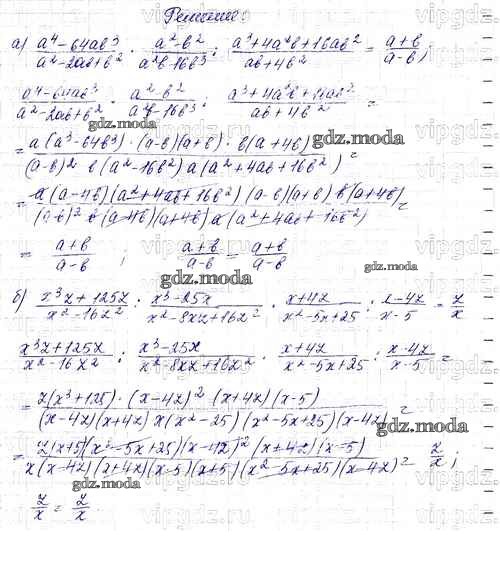 Решение:
а) (a⁴-64ab³)/(a²-2ab+b²) · (a²-b²)/(a²b-16b³) : (a³+4a²b+16ab²)/(ab+4b²) = (a+b)/(a-b);
(a⁴-64ab³)/(a²-2ab+b²) · (a²-b²)/(a²b-16b³) : (a³+4a²b+16ab²)/(ab+4b²) =
= (a(a³-64b³)·(a-b)(a+b)·b(a+4b))/((a-b)²·b(a²-16b²)a(a²+4ab+16b²)) =
= (a(a-4b)(a²+4ab+16b²)(a-b)(a+b)b(a+4b))/((a-b)²b(a-4b)(a+4b)a(a²+4ab+16b²)) =
= (a+b)/(a-b); (a+b)/(a-b) = (a+b)/(a-b)
б) (x³z+125z)/(x²-16z²) : (x³-25x)/(x²-8xz+16z²) · (x+4z)/(x²-5x+25) : (x-4z)/(x-5) = z/x
(x³z+125z)/(x²-16z²) : (x³-25x)/(x²-8xz+16z²) · (x+4z)/(x²-5x+25) : (x-4z)/(x-5) =
= (z(x³+125)·(x-4z)²(x+4z)(x-5))/((x-4z)(x+4z)x(x²-25)(x²-5x+25)(x-4z)) =
= (z(x+5)(x²-5x+25)(x-4z)²(x+4z)(x-5))/(x(x-4z)(x+4z)(x-5)(x+5)(x²-5x+25)(x-4z)) = z/x;
z/x = z/x
gdz.moda
gdz.moda
gdz.moda
gdz.moda
gdz.moda
gdz.moda
gdz.moda
gdz.moda